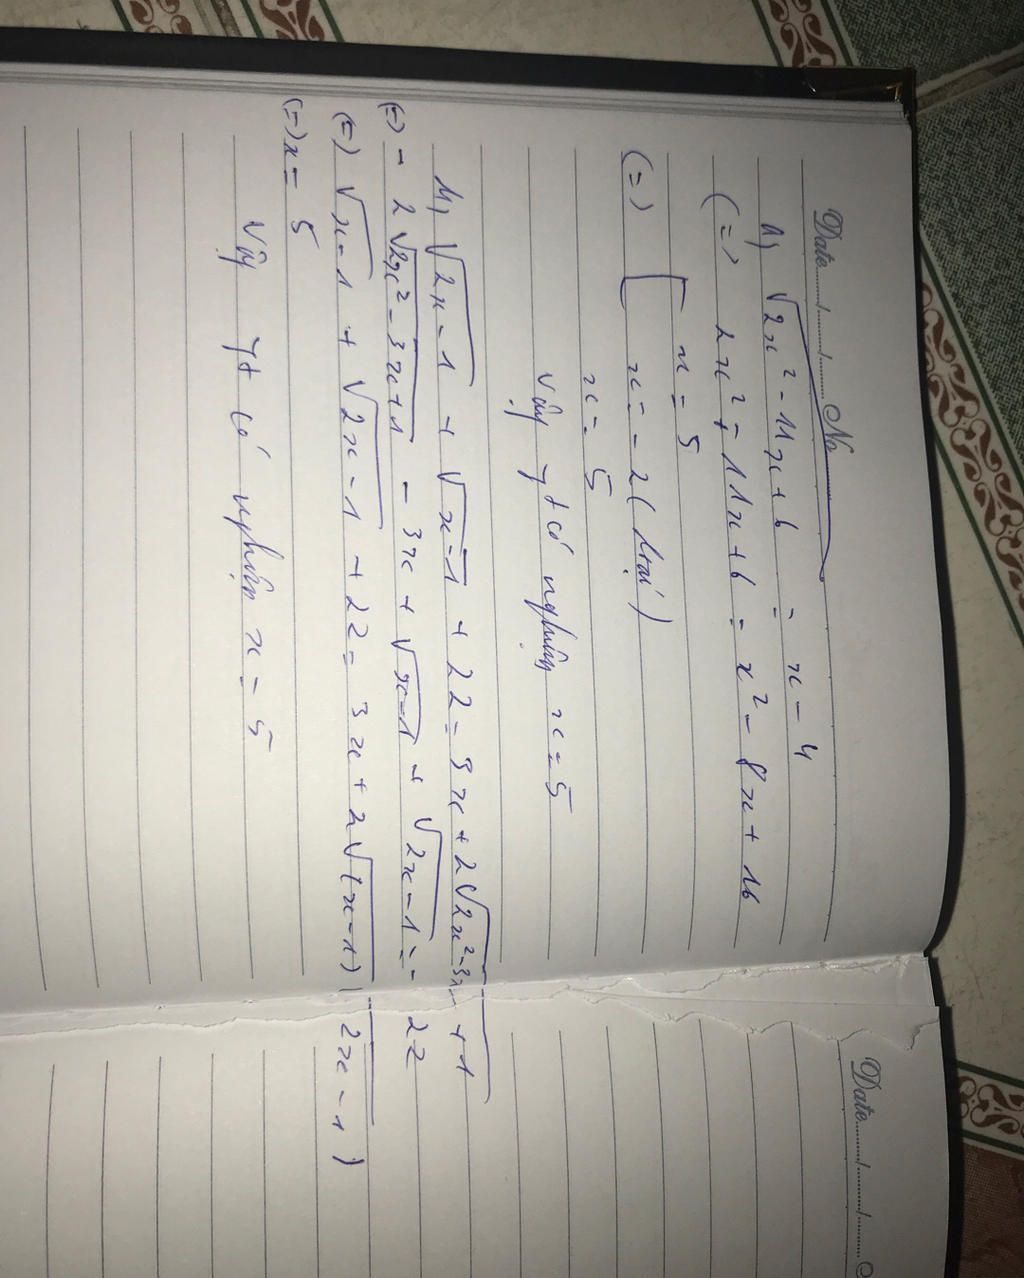 Date....../......../........ No
1) √2x² - 11x + 6 = x - 4
(=) 2x² - 11x + 6 = x² - 8x + 16
(=) [ x = 5
x = -2 (loại)
x = 5
Vậy pt có nghiệm x = 5
4) √2x-1 + √x-1 + 22 = 3x + 2√2x²-3x+1
(=) - 2√2x²-3x+1 - 3x + √x-1 + √2x-1 = -22
(=) √x-1 + √2x-1 + 22 = 3x + 2√(x-1)(2x-1)
(=) x = 5
Vậy pt có nghiệm x = 5
Date......./........./.........